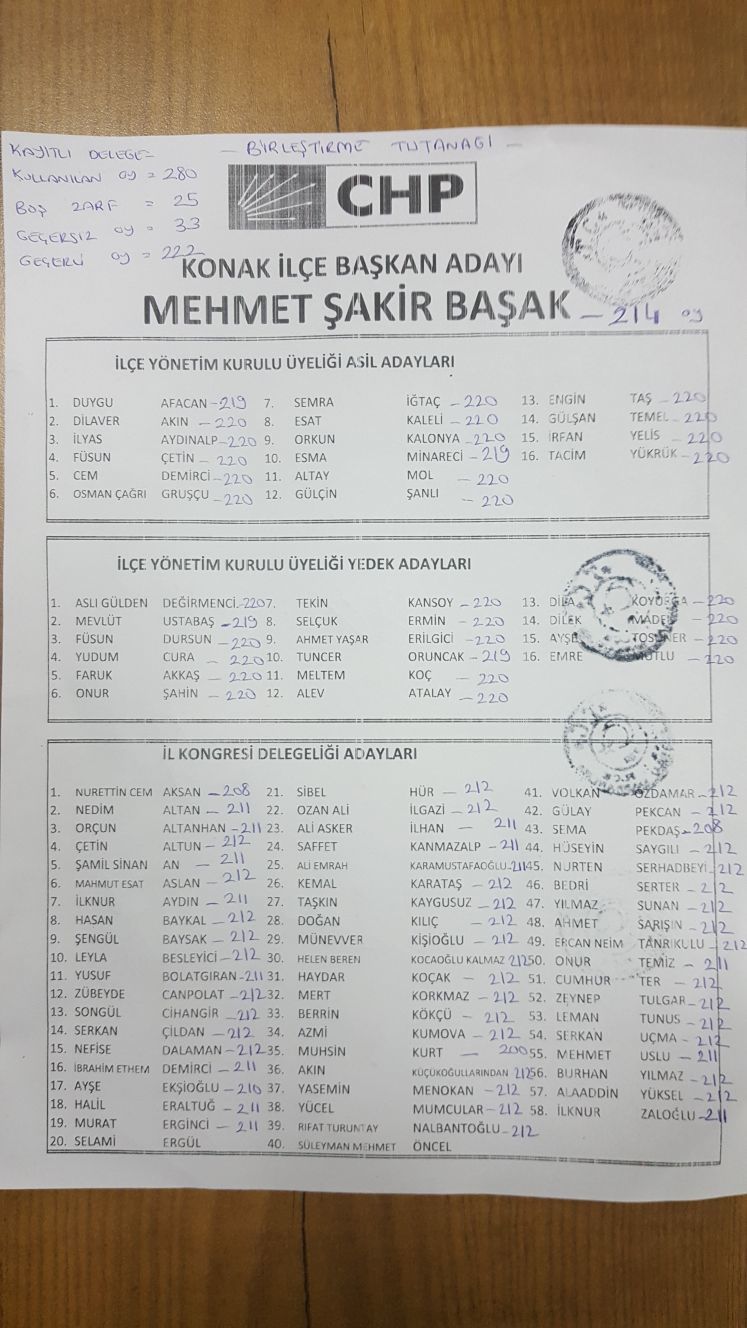 KAYITLI DELEGE=
— BİRLEŞTİRME TUTANAĞI —
KULLANILAN oy = 280
BOŞ ZARF = 25
GEÇERSİZ oy = 33
GEÇERLİ oy = 222
CHP
KONAK İLÇE BAŞKAN ADAYI
MEHMET ŞAKİR BAŞAK – 214 oy
İLÇE YÖNETİM KURULU ÜYELİĞİ ASİL ADAYLARI
1. DUYGU AFACAN – 219 7. SEMRA İĞTAÇ – 220 13. ENGİN TAŞ – 220
2. DİLAVER AKIN – 220 8. ESAT KALELİ – 220 14. GÜLŞAN TEMEL – 220
3. İLYAS AYDINALP – 220 9. ORKUN KALONYA – 220 15. İRFAN YELİS – 220
4. FÜSUN ÇETİN – 220 10. ESMA MİNARECİ – 219 16. TACİM YÜKRÜK – 220
5. CEM DEMİRCİ – 220 11. ALTAY MOL – 220
6. OSMAN ÇAĞRI GRUŞÇU – 220 12. GÜLÇİN ŞANLI – 220
İLÇE YÖNETİM KURULU ÜYELİĞİ YEDEK ADAYLARI
1. ASLI GÜLDEN DEĞİRMENCİ – 220 7. TEKİN KANSOY – 220 13. DİLA KOYDEĞA – 220
2. MEVLÜT USTABAŞ – 219 8. SELÇUK ERMİN – 220 14. DİLEK MADEN – 220
3. FÜSUN DURSUN – 220 9. AHMET YAŞAR ERİLGİCİ – 220 15. AYŞE TOSUNER – 220
4. YUDUM CURA – 220 10. TUNCER ORUNCAK – 219 16. EMRE MUTLU – 220
5. FARUK AKKAŞ – 220 11. MELTEM KOÇ – 220
6. ONUR ŞAHİN – 220 12. ALEV ATALAY – 220
İL KONGRESİ DELEGELİĞİ ADAYLARI
1. NURETTİN CEM AKSAN – 208 21. SİBEL HÜR – 212 41. VOLKAN ÖZDAMAR – 212
2. NEDİM ALTAN – 211 22. OZAN ALİ İLGAZİ – 212 42. GÜLAY PEKCAN – 212
3. ORÇUN ALTANHAN – 211 23. ALİ ASKER İLHAN – 211 43. SEMA PEKDAŞ – 208
4. ÇETİN ALTUN – 212 24. SAFFET KANMAZALP – 211 44. HÜSEYİN SAYGILI – 212
5. ŞAMİL SİNAN AN – 211 25. ALİ EMRAH KARAMUSTAFAOĞLU – 211 45. NURTEN SERHADBEYİ – 212
6. MAHMUT ESAT ASLAN – 212 26. KEMAL KARATAŞ – 212 46. BEDRİ SERTER – 212
7. İLKNUR AYDIN – 211 27. TAŞKIN KAYGUSUZ – 212 47. YILMAZ SUNAN – 212
8. HASAN BAYKAL – 212 28. DOĞAN KILIÇ – 212 48. AHMET SARIŞIN – 212
9. ŞENGÜL BAYSAK – 212 29. MÜNEVVER KİŞİOĞLU – 212 49. ERCAN NEİM TANRIKULU – 212
10. LEYLA BESLEYİCİ – 212 30. HELEN BEREN KOCAOĞLU KALMAZ 212 50. ONUR TEMİZ – 211
11. YUSUF BOLATGIRAN – 211 31. HAYDAR KOÇAK – 212 51. CUMHUR TER – 212
12. ZÜBEYDE CANPOLAT – 212 32. MERT KORKMAZ – 212 52. ZEYNEP TULGAR – 212
13. SONGÜL CİHANGİR – 212 33. BERRİN KÖKÇÜ – 212 53. LEMAN TUNUS – 212
14. SERKAN ÇILDAN – 212 34. AZMİ KUMOVA – 212 54. SERKAN UÇMA – 212
15. NEFİSE DALAMAN – 212 35. MUHSİN KURT – 200 55. MEHMET USLU – 211
16. İBRAHİM ETHEM DEMİRCİ – 211 36. AKIN KÜÇÜKOĞULLARINDAN 212 56. BURHAN YILMAZ – 212
17. AYŞE EKŞİOĞLU – 210 37. YASEMİN MENOKAN – 212 57. ALAADDİN YÜKSEL – 212
18. HALİL ERALTUĞ – 211 38. YÜCEL MUMCULAR – 212 58. İLKNUR ZALOĞLU – 211
19. MURAT ERGİNCİ – 211 39. RIFAT TURUNTAY NALBANTOĞLU – 212
20. SELAMİ ERGÜL 40. SÜLEYMAN MEHMET ÖNCEL